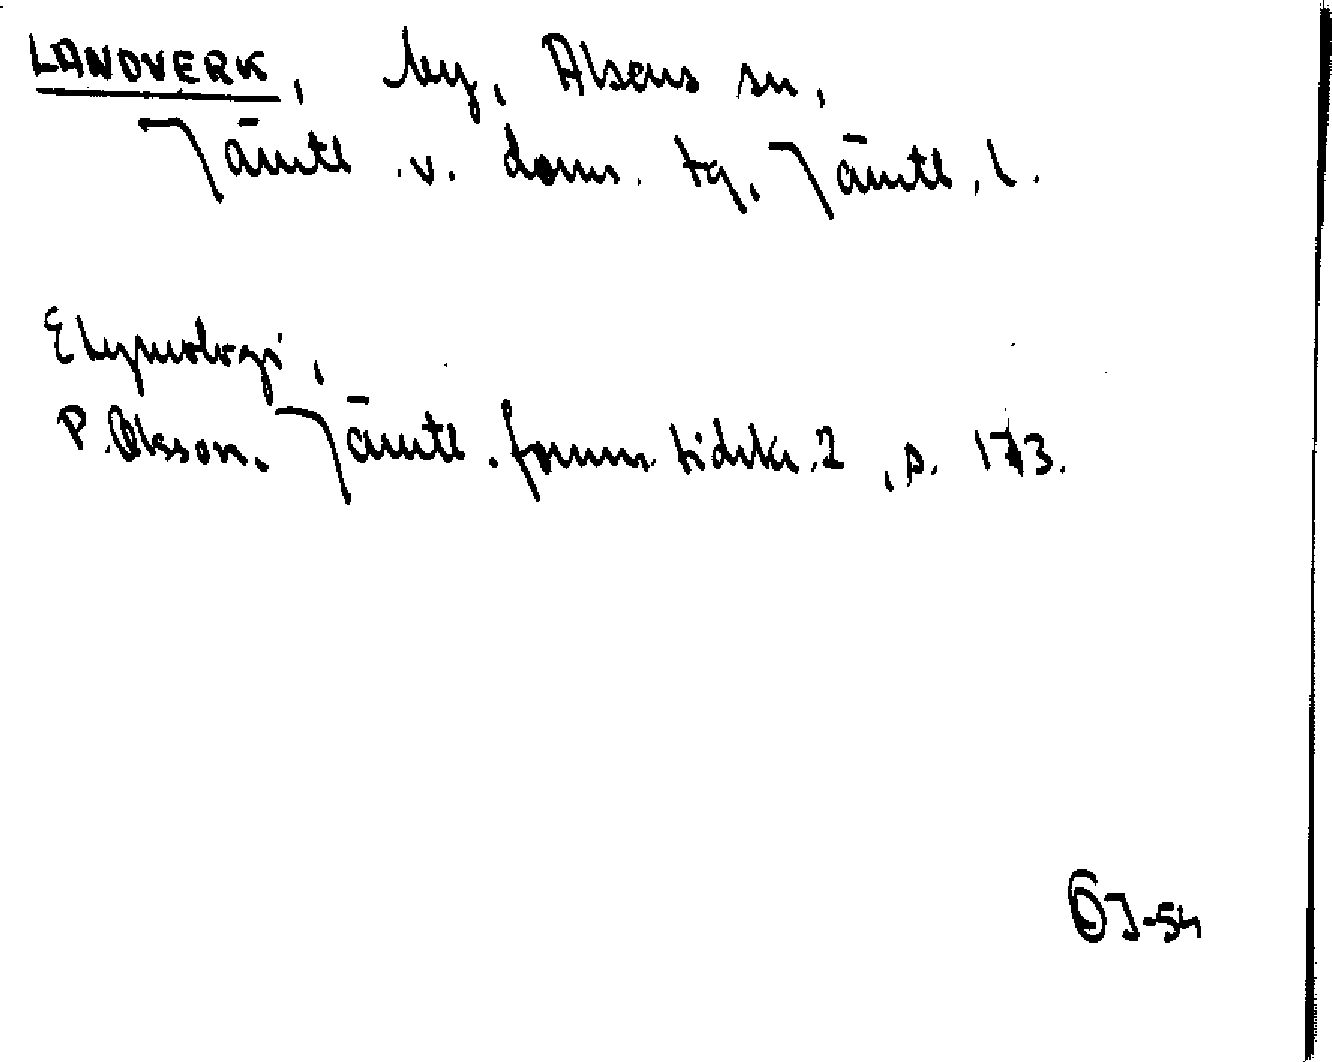 LANDVERK, by, Alsens sn,
Jämtl. v. doms. tg, Jämtl. l.
Etymologi,
P. Olsson. Jämtl. fornm. tidskr. 2, s. 173.
ÖJ-54